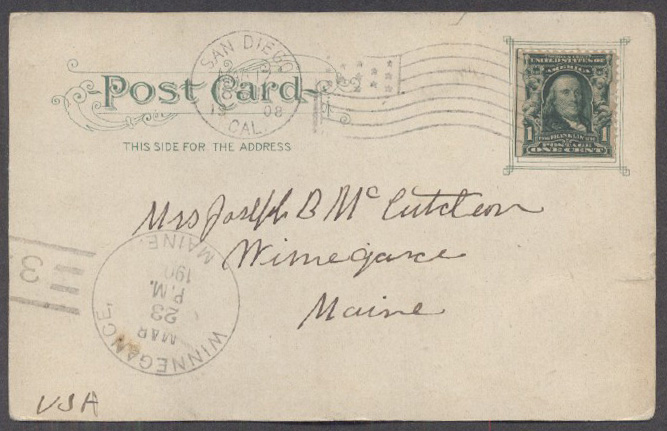 SAN DIEGO
08
CAL.
POST CARD
THIS SIDE FOR THE ADDRESS
UNITED STATES OF
AMERICA
1 FRANKLIN 1
POSTAGE
ONE CENT
Mrs Joseph B McCutcheon
Winnegance
Maine
WINNEGANCE,
MAINE.
MAR
23
P.M.
190
3
USA